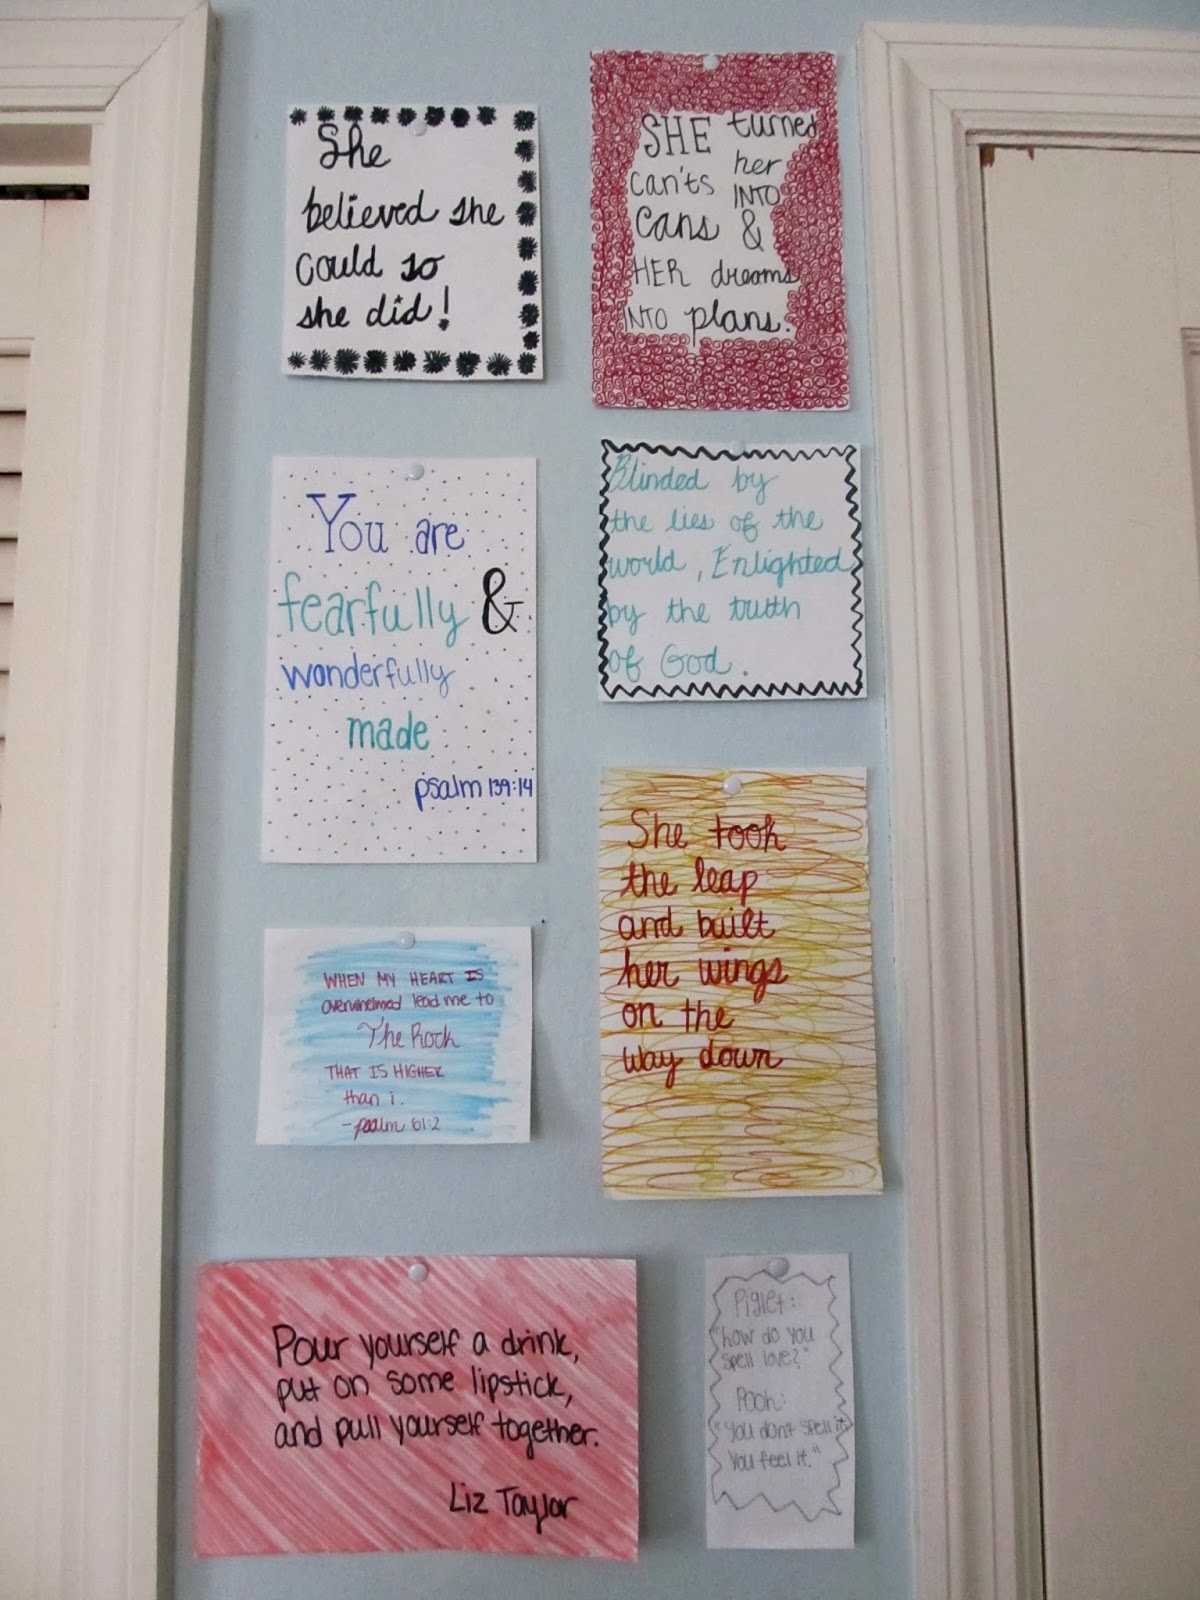 She
believed she
could so
she did!
SHE turned
her
can'ts INTO
cans &
HER dreams
INTO plans.
You are
fearfully &
wonderfully
made
psalm 139:14
Blinded by
the lies of the
world, Enlighted
by the truth
of God.
She took
the leap
and built
her wings
on the
way down
WHEN MY HEART IS
overwhelmed lead me to
The Rock
THAT IS HIGHER
than i.
-psalm 61:2
Pour yourself a drink,
put on some lipstick,
and pull yourself together.
Liz Taylor
Piglet:
"how do you
spell love?"
Pooh:
"You don't spell it,
You feel it."